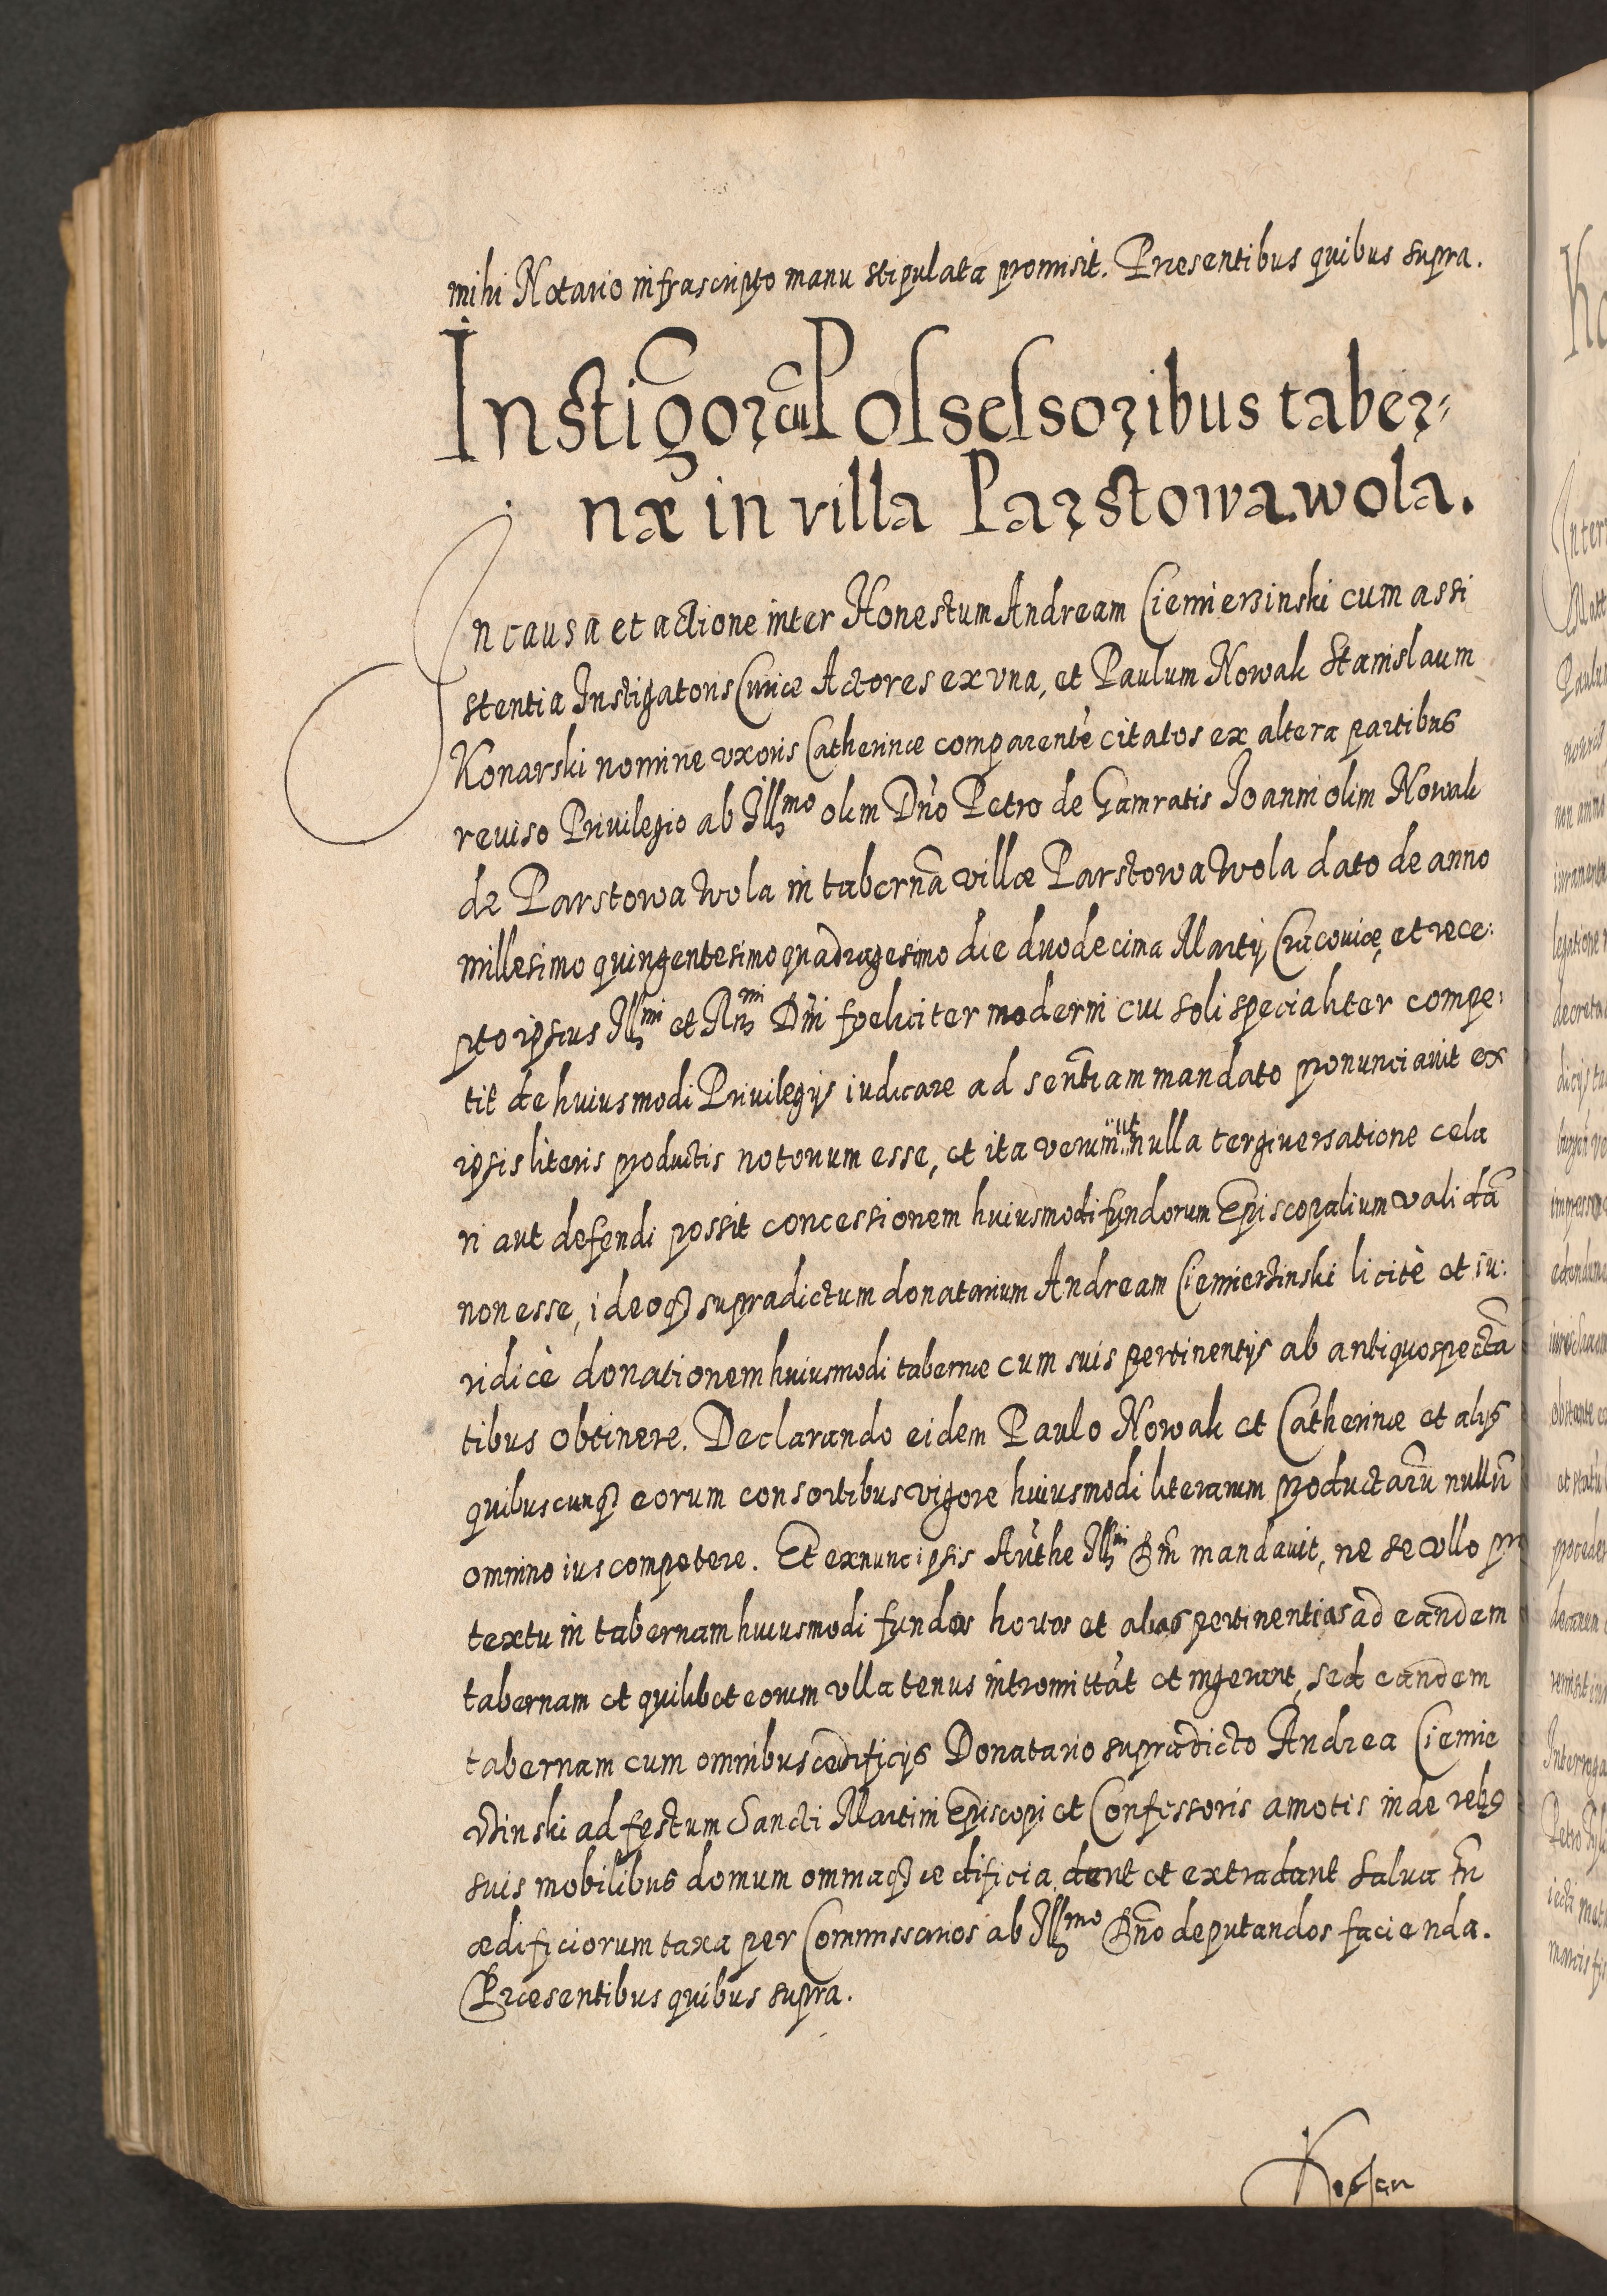 mihi Notario infrascripto manu stipulata promisit. Præsentibus quibus supra.
Instigōr cū Possessoribus taber-
næ in villa Parstowa wola.
In causa et actione inter Honestum Andream Ciemierzinski cum assi
stentia Instigatoris Curiæ Actores ex vna, et Paulum Nowak Stanislaum
Konarski nomine vxoris Catherinæ comparentè citatos ex altera partibus
reuiso Priuilegio ab Illmo olim Dn̄o Petro de Gamratis Joanni olim Nowak
de Parstowa Wola in tabernā villæ Parstowa Wola dato de anno
millesimo quingentesimo quadragesimo die duodecima Martij Cracouiæ, et rece:
pto ipsius Illmi et Rmi Dn̄i fœliciter moderni cui soli specialiter compe:
tit de huiusmodi Priuilegijs iudicare ad sentn̄iam mandato pronunciauit ex
ipsis literis productis notorium esse, et ita verum ut nulla tergiuersatione cela
ri aut defendi possit concessionem huiusmodi fundorum Episcopalium validā
non esse, ideoq3 supradictum donatarium Andream Ciemierzinski licitè et iu:
ridicè donationem huiusmodi tabernæ cum suis pertinentijs ab antiquo spectā
tibus obtinere. Declarando eidem Paulo Nowak et Catherinæ et alijs
quibuscunq3 eorum consortibus vigore huiusmodi literarum productarū nullū
omnino ius competere. Et exnunc ipsis Authe Illmi Dn̄i mandauit, ne se vllo præ
textu in tabernam huiusmodi fundos hortos et alias pertinentias ad eandem
tabernam et quilibet eorum vllatenus intromittāt et ingerant, sed eandem
tabernam cum omnibus ædificijs Donatario supradicto Andrea Ciemie
rzinski ad festum Sancti Martini Episcopi et Confessoris amotis inde reb9
suis mobilibus domum omniaq3 ædificia dent et extradant salua tn̄
ædificiorum taxa per Commissarios ab Illmo Dn̄o deputandos facienda.
Præsentibus quibus supra.